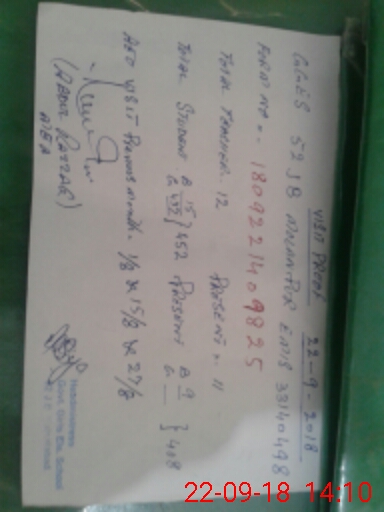 VISIT PROOF 22-9-2018
GGES 52 JB EMIS 33140498
FORM NO =. 180922140 9825
TOTAL TEACHER. 12 PRESENT = 11
TOTAL STUDENT B 15 G 437 } 452 PRESENT B 9 G — } 408
AEO VISIT Previous month. 1/8 & 15/8 & 27/8
(ABDUL RAZZAQ)
AEO
Headmistress
Govt. Girls Ele. School
22-09-18 14:10